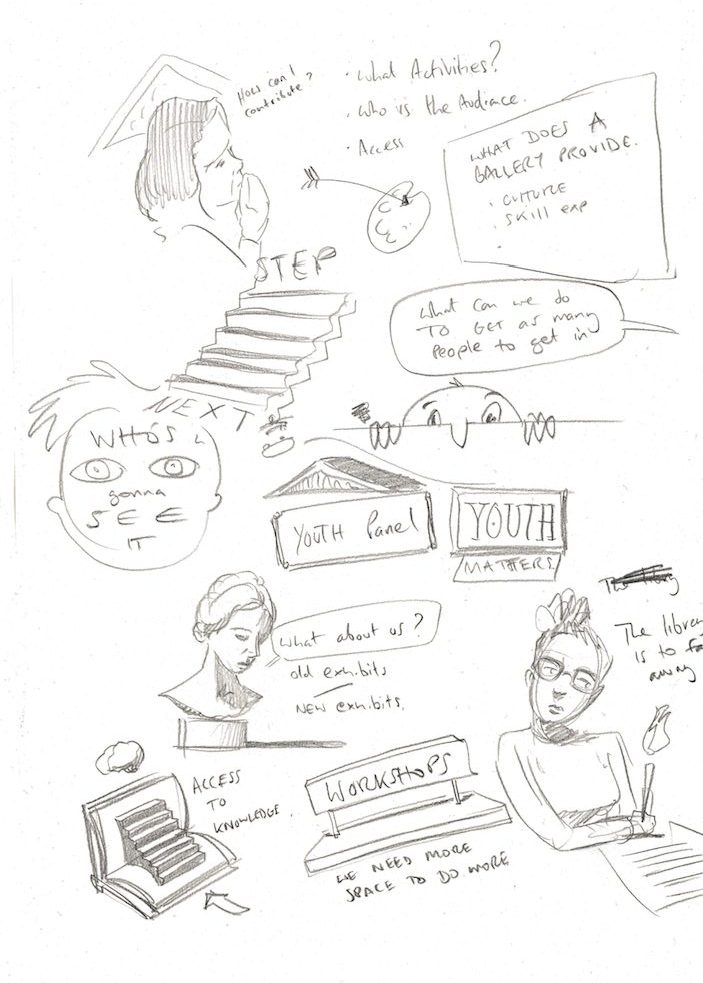 How can I
contribute?
· What Activities?
· Who is the Audiance.
· Access
WHAT DOES A
GALLERY PROVIDE.
· CULTURE
· SKILL EXP
·
STEP
What can we do
TO GET as many
People to get in
NEXT
WHO'S
gonna
SEE
IT
YOUTH Panel
YOUTH
MATTERS
What about us?
old exhibits
NEW exhibits.
The
The librar
is to fa
away
ACCESS
TO
KNOWLEDGE.
WORKSHOPS
WE NEED MORE
SPACE TO DO MORE